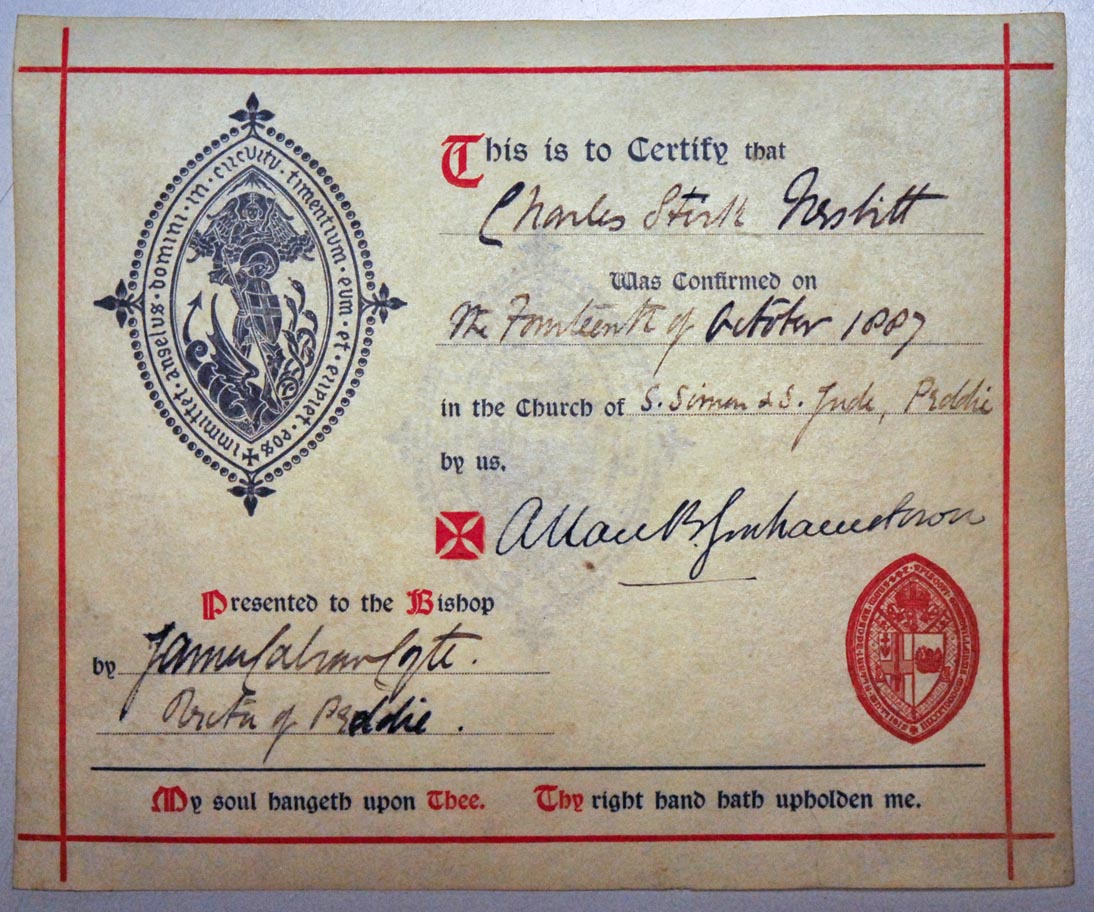 immittet · angelus · domini · in · circuitu · timentium · eum · et · eripiet · eos
This is to Certify that
Charles Stirk Nesbitt
Was Confirmed on
The Fourteenth of October 1887
in the Church of S. Simon & S. Jude, Peddie
by us.
Allan B. Grahamstown
Presented to the Bishop
by James
Rector of Peddie.
My soul hangeth upon Thee. Thy right hand hath upholden me.